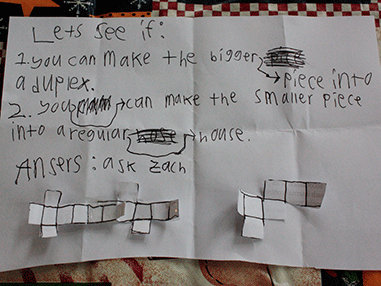 Lets see if:
1. you can make the bigger
→piece into
a duplex.
2. you →can make the smaller piece
into a regular →house.
Ansers: ask zach